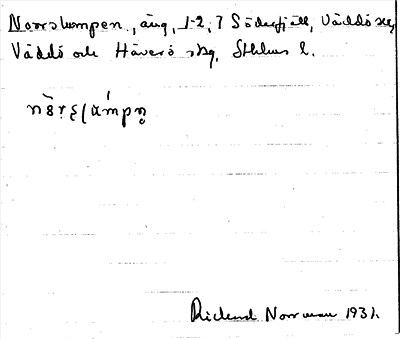 Norrskumpen, äng, 1-2, 7 Söderfjäll, Väddö skg,
Väddö och Häverö skg, Sthlms l.
Rickard Norrman 1931.